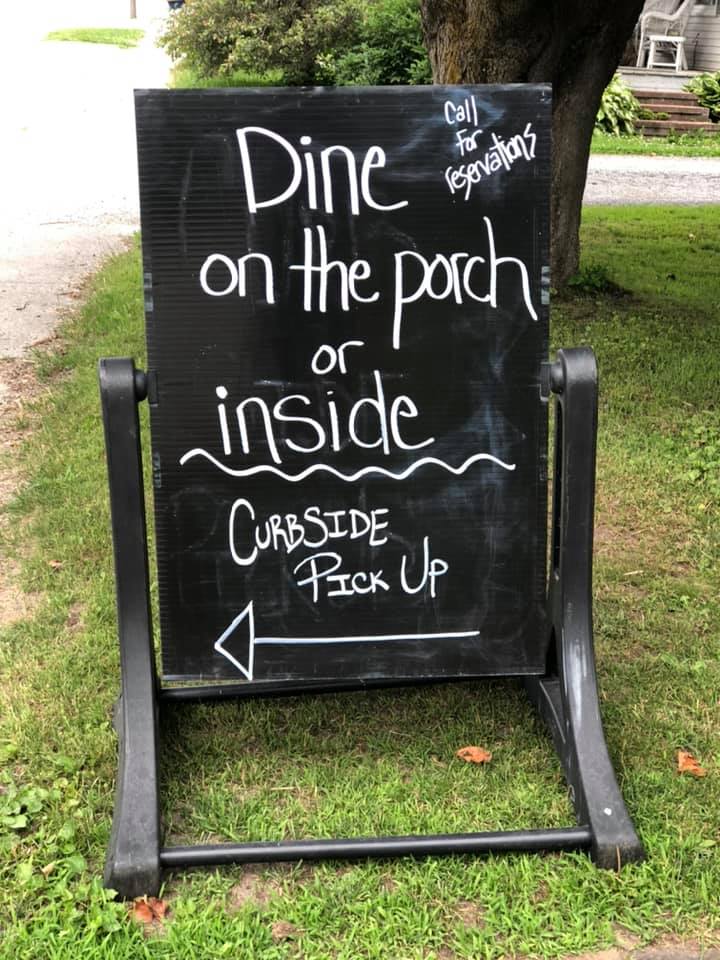 Call
for
reservations
Dine
on the porch
or
inside
CURBSIDE
PICK UP